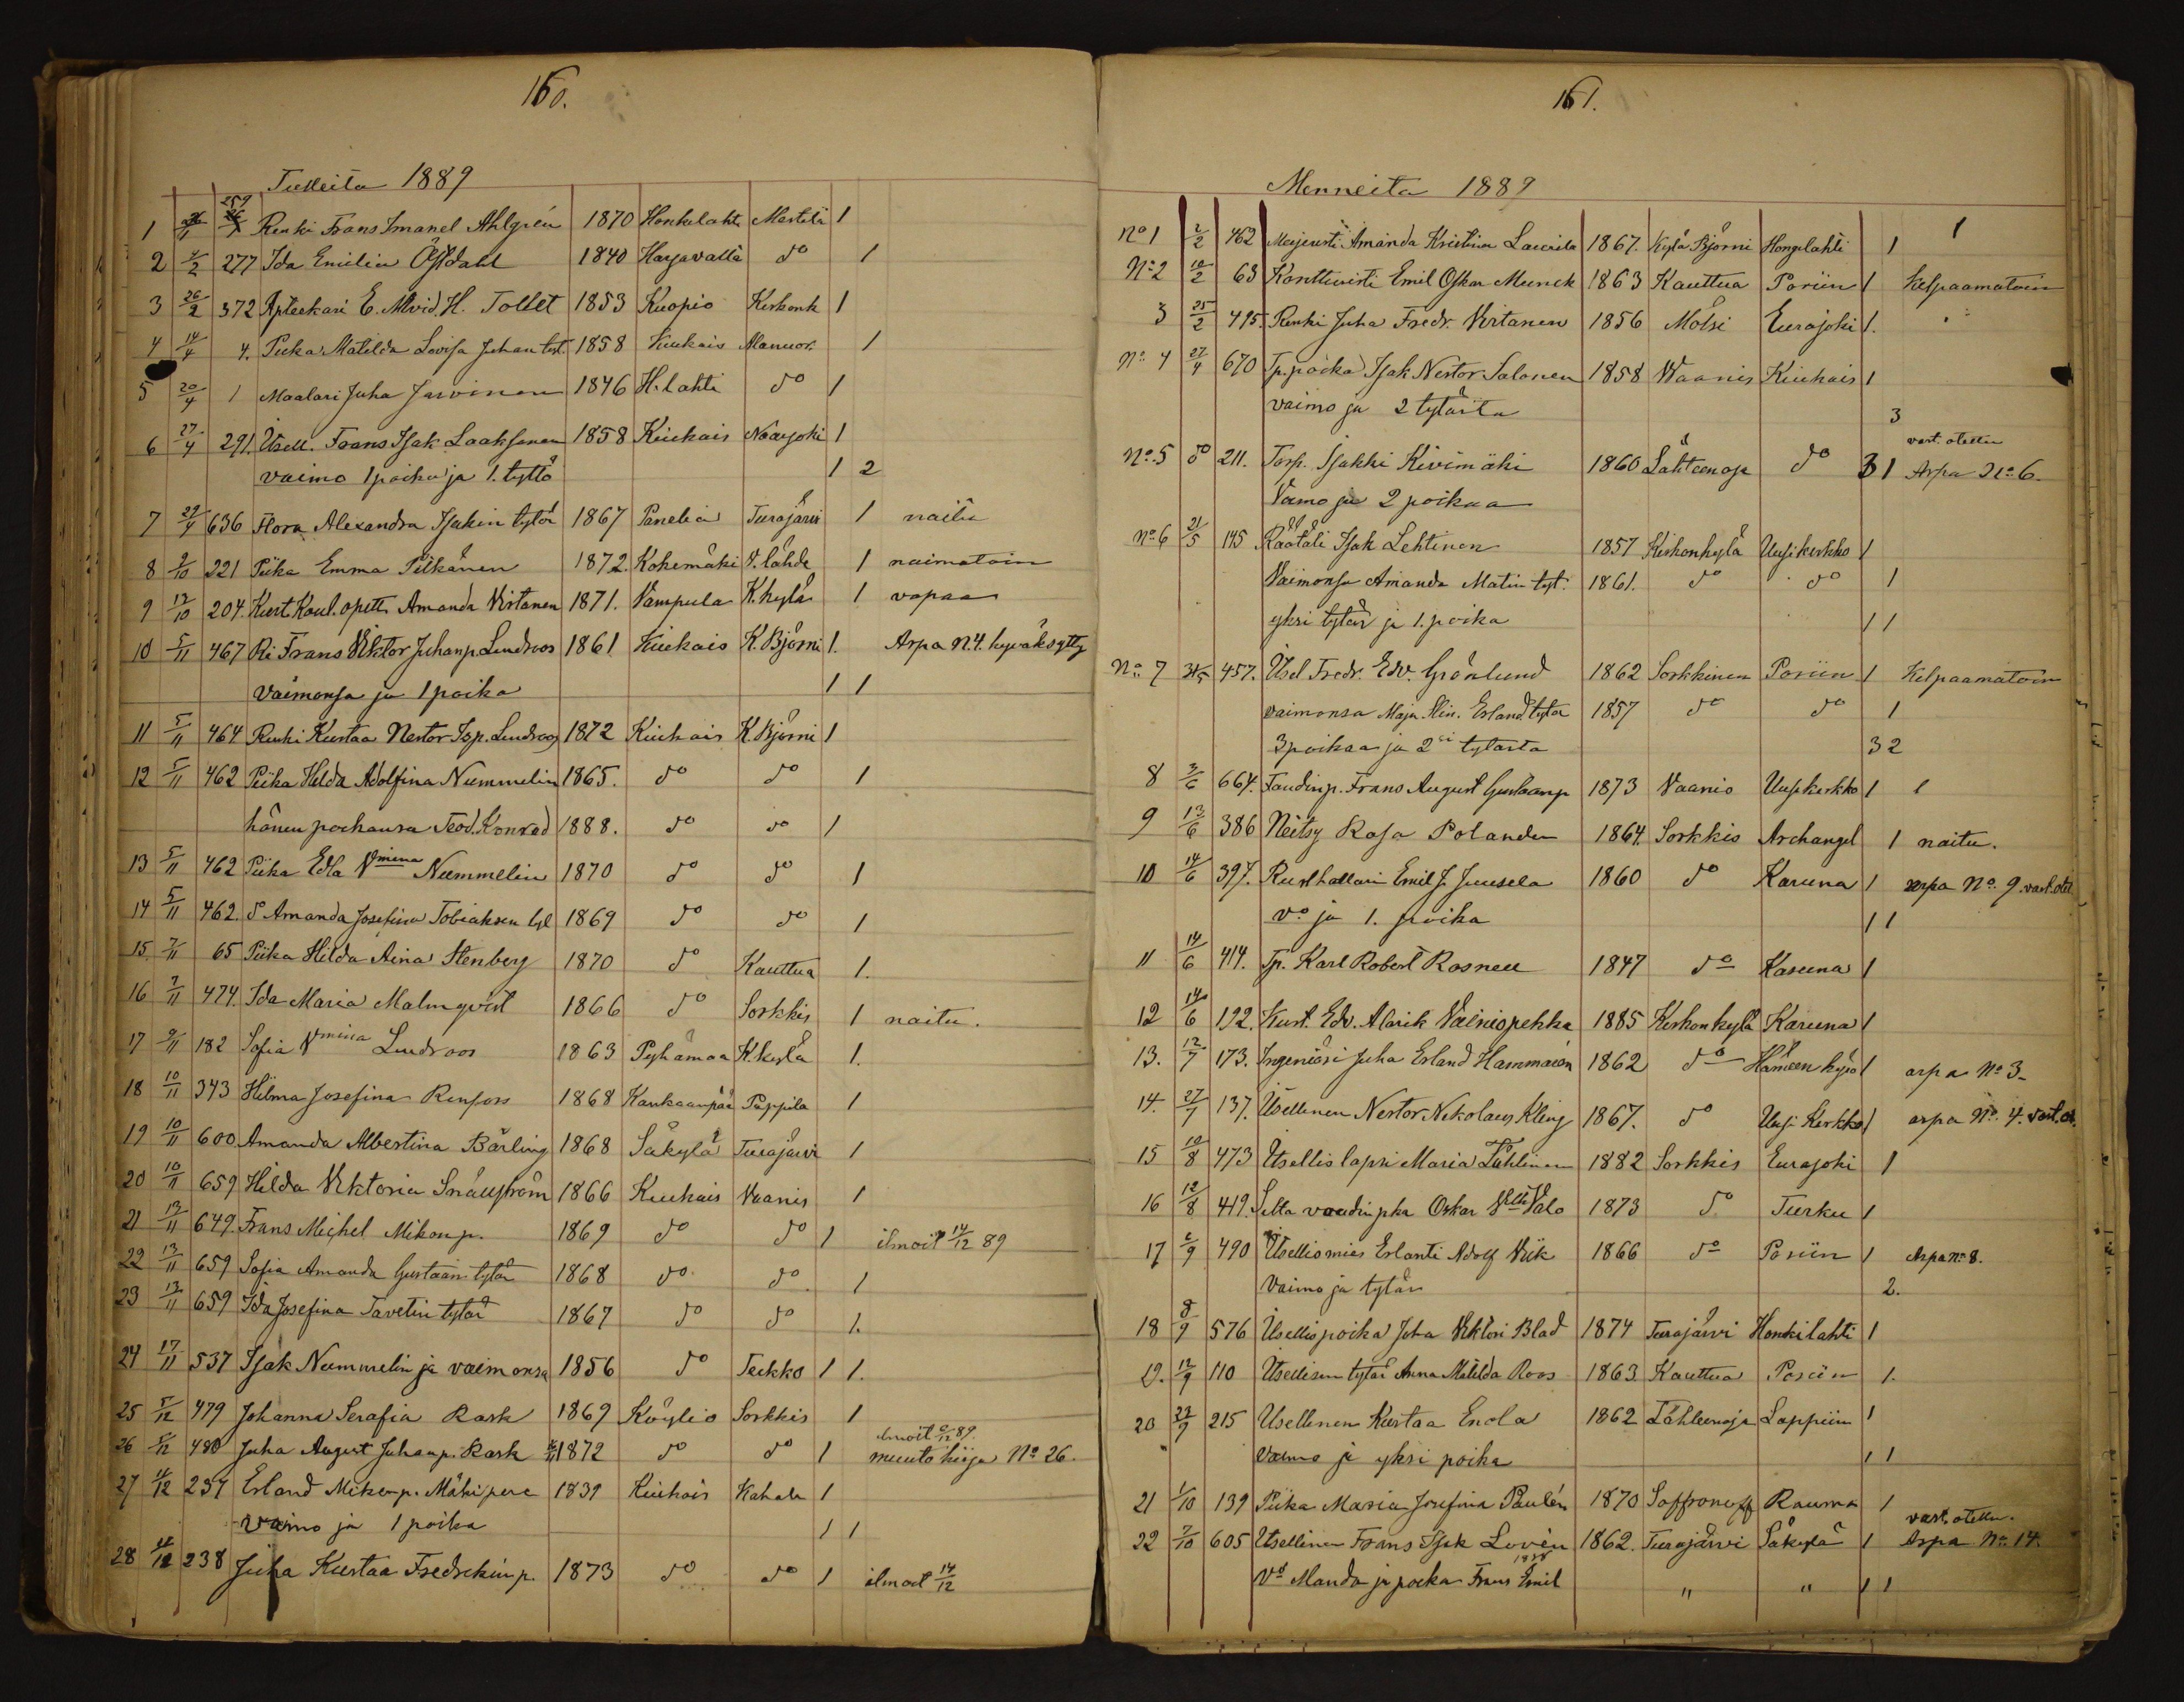 160.
Tulleita 1889
259
1 Renki Frans Imanel Ahlgrén 1870 Honkilahti Mestilä 1
2 4/2 277 Ida Emilia Öfdahl 1840 Harjavalta do 1
3 26/2 372 Apteekari E. Alvid. H. Tollet 1853 Kuopio Kirkonk 1
4 14/4 4. Piika Matilda Lovisa Juhan tyt. 1858 Kiukais Mannor. 1
5 20/4 1 Maalari Juha Jarvinen 1846 H:lahti do 1
6 27/4 291. Itsell. Frans Isak Laaksonen 1858 Kiukais Naarjoki 1
vaimo 1 poika ja 1. tyttö 1 2
7 29/4 636 Flora Alexandra Isakin tytär 1867 Panelia Turajärvi 1 naitu
8 9/10 221 Piika Emma Pilkänen 1872. Kokemäki V.lähde 1 naimatoin
9 12/10 204. Kiert.Koul.opett. Amanda Virtanen 1871. Vampula K.kylä 1 vapaa
10 5/11 467 Ri Frans Viktor Juhanp. Lindroos 1861 Kiukais K.Björni 1. Arpa N.4. hyväksytty
Vaimonsa ja 1 poika 1 1
11 5/11 464 Renki Kustaa Nestor Isp. Lindroos 1872 Kiukais K.Björni 1
12 5/11 462 Piika Hilda Adolfina Nummelin 1865. do do 1
hänen poikansa Teod. Konrad 1888. do do 1
13 5/11 462 Piika Edla Vmina Nummelin 1870 do do 1
14 5/11 462. P Amanda Josefina Tobiaksen tyt 1869 do do 1
15 7/11 65 Piika Hilda Aina Stenberg 1870 do Kauttua 1.
16 7/11 474. Ida Maria Malmqvist 1866 do Sorkkis 1 naitu.
17 9/11 182 Sofia Vmina Lindroos 1863 Pyhämaa K.kylä 1.
18 10/11 343 Hilma Josefina Renfors 1868 Kankaanpää Pappila 1
19 10/11 600. Amanda Albertina Bärling 1868 Säkylä Turajärvi 1
20 10/11 659 Hilda Viktoria Snällström 1866 Kiukais Vaanis 1
21 13/11 649. Frans Michel Mikonp. 1869 do do 1 ilmoit 14/12 89
22 13/11 659 Sofia Amanda Gustaan tytär 1868 do do 1
23 13/11 659 Ida Josefina Tavetin tytär 1867 do do 1.
24 17/11 537 Isak Nummelin ja vaimonsa 1856 do Teikko 1 1.
25 5/12 479 Johanna Serafia Rask 1869 Köyliö Sorkkis 1
26 5/12 480 Juha August Juhanp. Rask 1872 do do 1 muuto kirja No 26.
27 4/12 237 Erland Mikonp. Mäkiperä 1839 Kiukais Kahala 1
vaimo ja 1 poika 1 1
28 4/12 238 Juha Kustaa Fredrekin p. 1873 do do 1 ilmoit 14/12
161.
Menneitä 1889
No 1 2/2 462 Meijeristi Amanda Kristiina Laurila 1867. Kylä Björni Hongilahti 1 1
No 2 10/2 63 Konttoristi Emil Oskar Munck 1863 Kauttua Poriin 1 Kelpaamatoin
3 25/2 415. Renki Juha Fredr. Virtanen 1856 Mölsi Eurajoki 1.
No 4 27/4 670 Tp. poika Isak Nestor Salonen 1858 Waanis Kiukais 1
vaimo ja 2 tytärtä 3
No 5 do 211. Torp. Isakki Kivimäki 1860 Lähteenoja do 3 1 vast. otettu Arpa No 6.
Vaimo ja 2 poikaa
No 6 21/5 145 Räätäli Isak Lehtinen 1857 Kirkonkylä Uusikirkko 1
Vaimonsa Amanda Matin tyt. 1861. do do 1
yksi tytär ja 1. poika 1 1
No 7 457. Itsel Fredr. Edv. Grönlund 1862 Sorkkinen Poriin 1 Kelpaamatoin
vaimonsa Maja Stin. Erland tytär 1857 do do 1
3 poikaa ja 2si tytärtä 3 2
8 3/6 664. Faudinp. Frans August Gustaanp 1873 Vaanio Uusikirkko 1 1
9 13/6 386 Neitsy Rosa Polander 1864. Sorkkis Archangel 1 naitu.
10 14/6 397. Rusthollari Emil J. Juusela 1860 do Karuna 1 arpa No 9. vast.otet
Vo ja 1. poika 1 1
11 14/6 414. Tp. Karl Robert Rosnell 1847 do Karuna 1
12 14/6 192. Kust. Edv. Alarik Välniopekka 1885 Kirkonkylä Karuna 1
13. 12/7 173. Ingeniöri Juha Erland Hammarén 1862 do Hämeenkyrö 1 arpa No 3
14. 27/7 137. Itsellinen Nestor Nikolaus Kling 1867. do Uusi Kirkko 1 arpa No. 4. vast. ot.
15 10/8 473 Itsellis lapsi Maria Tähtinen 1882 Sorkkis Eurajoki 1
16 12/8 419. Silta voudin pka Oskar Vlle Valo 1873 do Turku 1
17 2/9 490 Itselliomies Erlanti Adolf Vik 1866 do Poriin 1 Arpa No 8.
Vaimo ja tytär 2.
18 8/9 576 Itsellis poika Juha Viktori Blad 1874 Turajärvi Honkilahti 1
19. 12/9 110 Itsellisen tytär Anna Matilda Roos 1863 Kauttua Poriin 1.
20 23/9 215 Itsellinen Kustaa Enola 1862 Lähteenoja Lappiin 1
Vaimo ja yksi poika 1 1
21 1/10 139 Piika Maria Josefina Paulén 1870 Soffronoff Rauma 1
22 7/10 605 Itsellinen Frans Isak Lovén 1862. Turajärvi Säkylä 1 vast. otettu. Arpa No 14.
Vo Manda ja poika Frans Emil " " 1 1